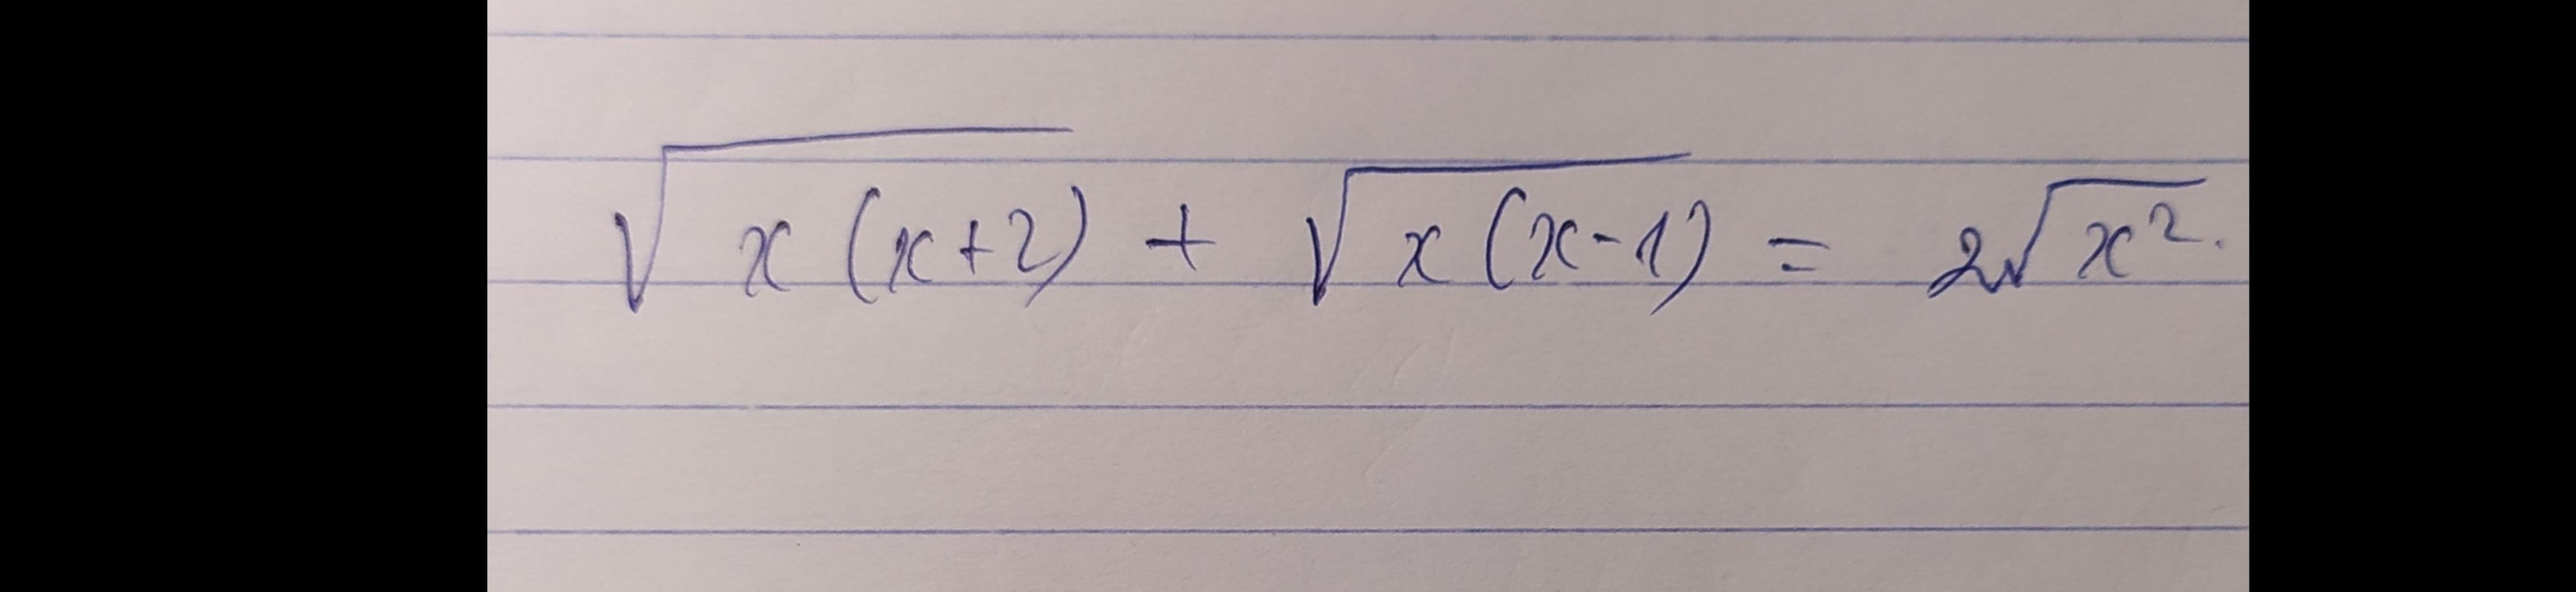 √x(x+2) + √x(x-1) = 2√x².